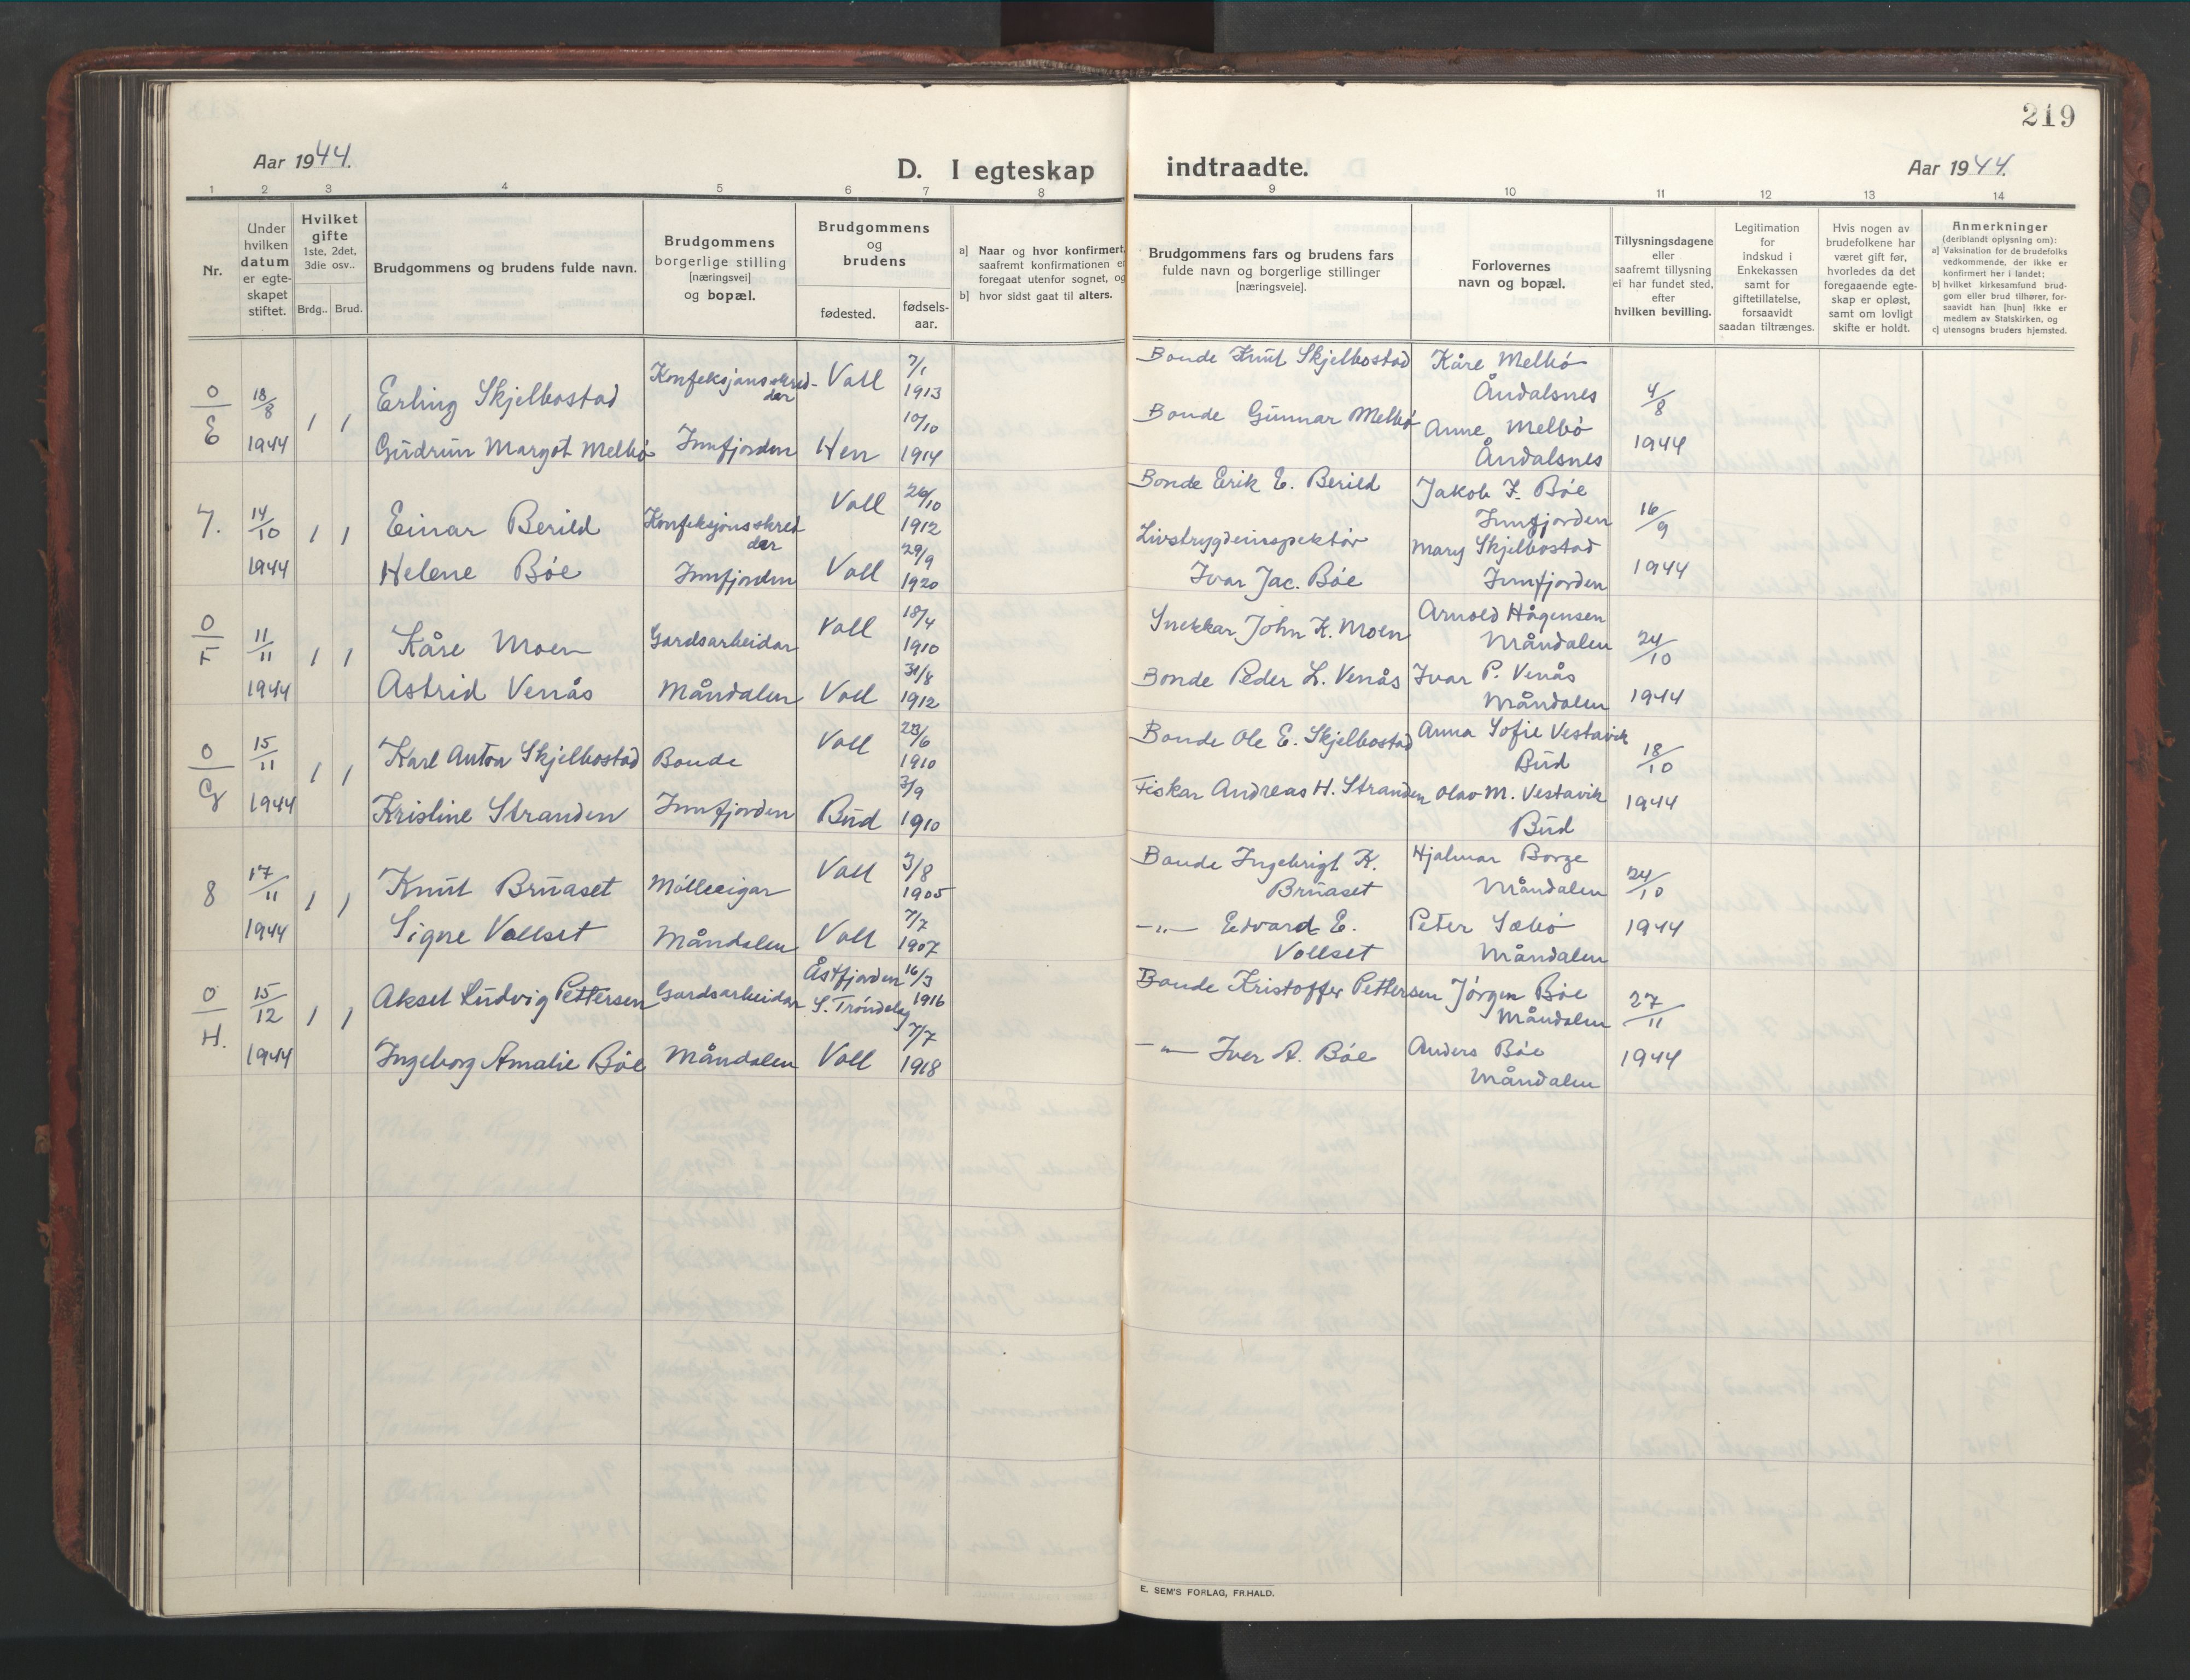 219
Aar 1944.
D. I egteskap indtraadte.
Aar 1944.
1 2 3 4 5 6 7 8 9 10 11 12 13 14
Nr.
Under hvilken datum er egteskapet stiftet.
Hvilket gifte 1ste, 2det, 3die osv..
Brdg.. Brud.
Brudgommens og brudens fulde navn.
Brudgommens borgerlige stilling [næringsvei] og bopæl.
Brudgommens og brudens
fødested. fødsels-aar.
a] Naar og hvor konfirmert, saafremt konfirmationen er foregaat utenfor sognet, og
b] hvor sidst gaat til alters.
Brudgommens fars og brudens fars fulde navn og borgerlige stillinger [næringsveie].
Forlovernes navn og bopæl.
Tillysningsdagene eller saafremt tillysning ei har fundet sted, efter hvilken bevilling.
Legitimation for indskud i Enkekassen samt for giftetillatelse, forsaavidt saadan tiltrænges.
Hvis nogen av brudefolkene har været gift før, hvorledes da det foregaaende egteskap er opløst, samt om lovligt skifte er holdt.
Anmerkninger (deriblandt oplysning om):
a] Vaksination for de brudefolks vedkommende, der ikke er konfirmert her i landet;
b] hvilket kirkesamfund brudgom eller brud tilhører, forsaavidt han [hun] ikke er medlem av Statskirken, og
c] utensogns bruders hjemsted.
O/E 18/8 1944 1 1 Erling Skjelbostad Konfeksjonsskreddar Voll 7/1 1913 Bonde Knut Skjelbostad Kåre Melbø Åndalsnes 4/8 1944
Gudrun Margot Melbø Innfjorden Hen 10/10 1914 Bonde Gunnar Melbø Anne Melbø Åndalsnes
7. 14/10 1944 1 1 Einar Berild Konfeksjonsskreddar Voll 26/10 1912 Bonde Erik E. Berild Jakob I. Bøe Innfjorden 16/9 1944
Helene Bøe Innfjorden Voll 29/9 1920 Livstrygdinspektør Ivar Jac. Bøe Mary Skjelbostad Innfjorden
O/F 11/11 1944 1 1 Kåre Moen Gardsarbeidar Voll 18/4 1910 Snekkar John K. Moen Arnold Hågensen Måndalen 24/10 1944
Astrid Venås Måndalen Voll 31/8 1912 Bonde Peder L. Venås Ivar P. Venås Måndalen
O/G 15/11 1944 1 1 Karl Anton Skjelbostad Bonde Voll 23/6 1910 Bonde Ole E. Skjelbostad Anna Sofie Vestavik Bud 18/10 1944
Kristine Stranden Innfjorden Bud 3/9 1910 Fiskar Andreas H. Stranden Olav M. Vestavik Bud
8 17/11 1944 1 1 Knut Bruaset Mølleeigar Voll 3/8 1905 Bonde Ingebrigt K. Bruaset Hjalmar Borge Måndalen 24/10 1944
Signe Vollset Måndalen Voll 7/7 1907 -"- Edvard E. Vollset Peter Sæbø Måndalen
O/H. 15/12 1944 1 1 Aksel Ludvig Pettersen Gardsarbeidar Åstfjorden S. Trøndelag 16/3 1916 Bonde Kristoffer Pettersen Jørgen Bøe Måndalen 27/11 1944
Ingeborg Amalie Bøe Måndalen Voll 7/7 1918 -"- Iver A. Bøe Anders Bøe Måndalen
E. SEM'S FORLAG, FR.HALD.